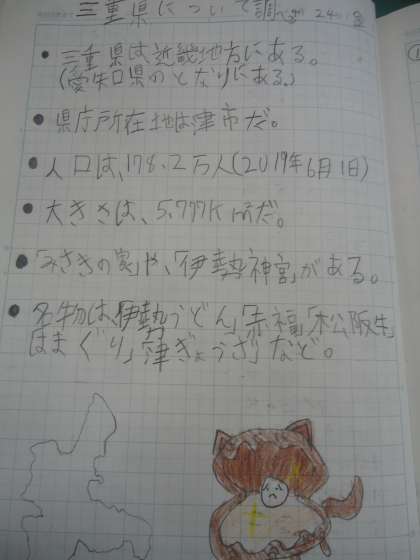 三重県について調べ
・三重県は近畿地方にある。
(愛知県のとなりにある。)
●県庁所在地は津市だ。
●人口は、178.2万人(2019年6月1日)
●大きさは、5,777K㎡だ。
●「みさきの家」や、「伊勢神宮」がある。
●名物は、「伊勢うどん」「赤福」「松阪牛」
はまぐり」「津ぎょうざ」など。